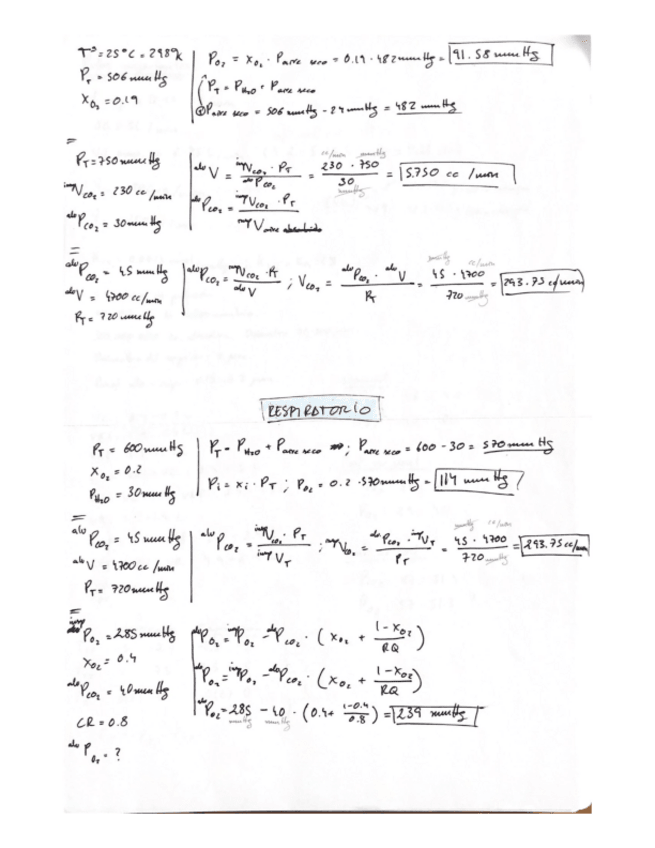 T° = 25°C = 298°K
P_T = 506 mmHg
X_O2 = 0.19
P_O2 = X_O2 · P aire seco = 0.19 · 482 mmHg = 91.58 mmHg
P_T = P_H2O + P aire seco
P aire seco = 506 mmHg - 24 mmHg = 482 mmHg
=
P_T = 750 mmHg
V_CO2 = 230 cc/min
alv P_CO2 = 30 mmHg
alv V = V_CO2 · P_T / alv P_CO2 = 230 · 750 / 30 = 5.750 cc/min
cc/min mmHg
mmHg
alv P_CO2 = V_CO2 · P_T / V aire
=
alv P_CO2 = 45 mmHg
alv V = 4700 cc/min
P_T = 720 mmHg
alv P_CO2 = V_CO2 · P_T / alv V ; V_CO2 = alv P_CO2 · alv V / P_T = 45 · 4700 / 720 = 293.75 cc/min
mmHg cc/min
mmHg
RESPIRATORIO
P_T = 600 mmHg
X_O2 = 0.2
P_H2O = 30 mmHg
P_T = P_H2O + P aire seco ; P aire seco = 600 - 30 = 570 mmHg
P_i = x_i · P_T ; P_O2 = 0.2 · 570 mmHg = 114 mmHg
=
alv P_CO2 = 45 mmHg
alv V = 4700 cc/min
P_T = 720 mmHg
alv P_CO2 = V_CO2 · P_T / V_T ; V_CO2 = alv P_CO2 · V_T / P_T = 45 · 4700 / 720 = 293.75 cc/min
mmHg cc/min
mmHg
=
P_O2 = 285 mmHg
X_O2 = 0.4
alv P_CO2 = 40 mmHg
CR = 0.8
alv P_O2 = ?
alv P_O2 = P_O2 - alv P_CO2 · (X_O2 + 1-X_O2 / RQ)
alv P_O2 = P_O2 - alv P_CO2 · (X_O2 + 1-X_O2 / RQ)
alv P_O2 = 285 - 40 · (0.4 + 1-0.4 / 0.8) = 239 mmHg
mmHg mmHg